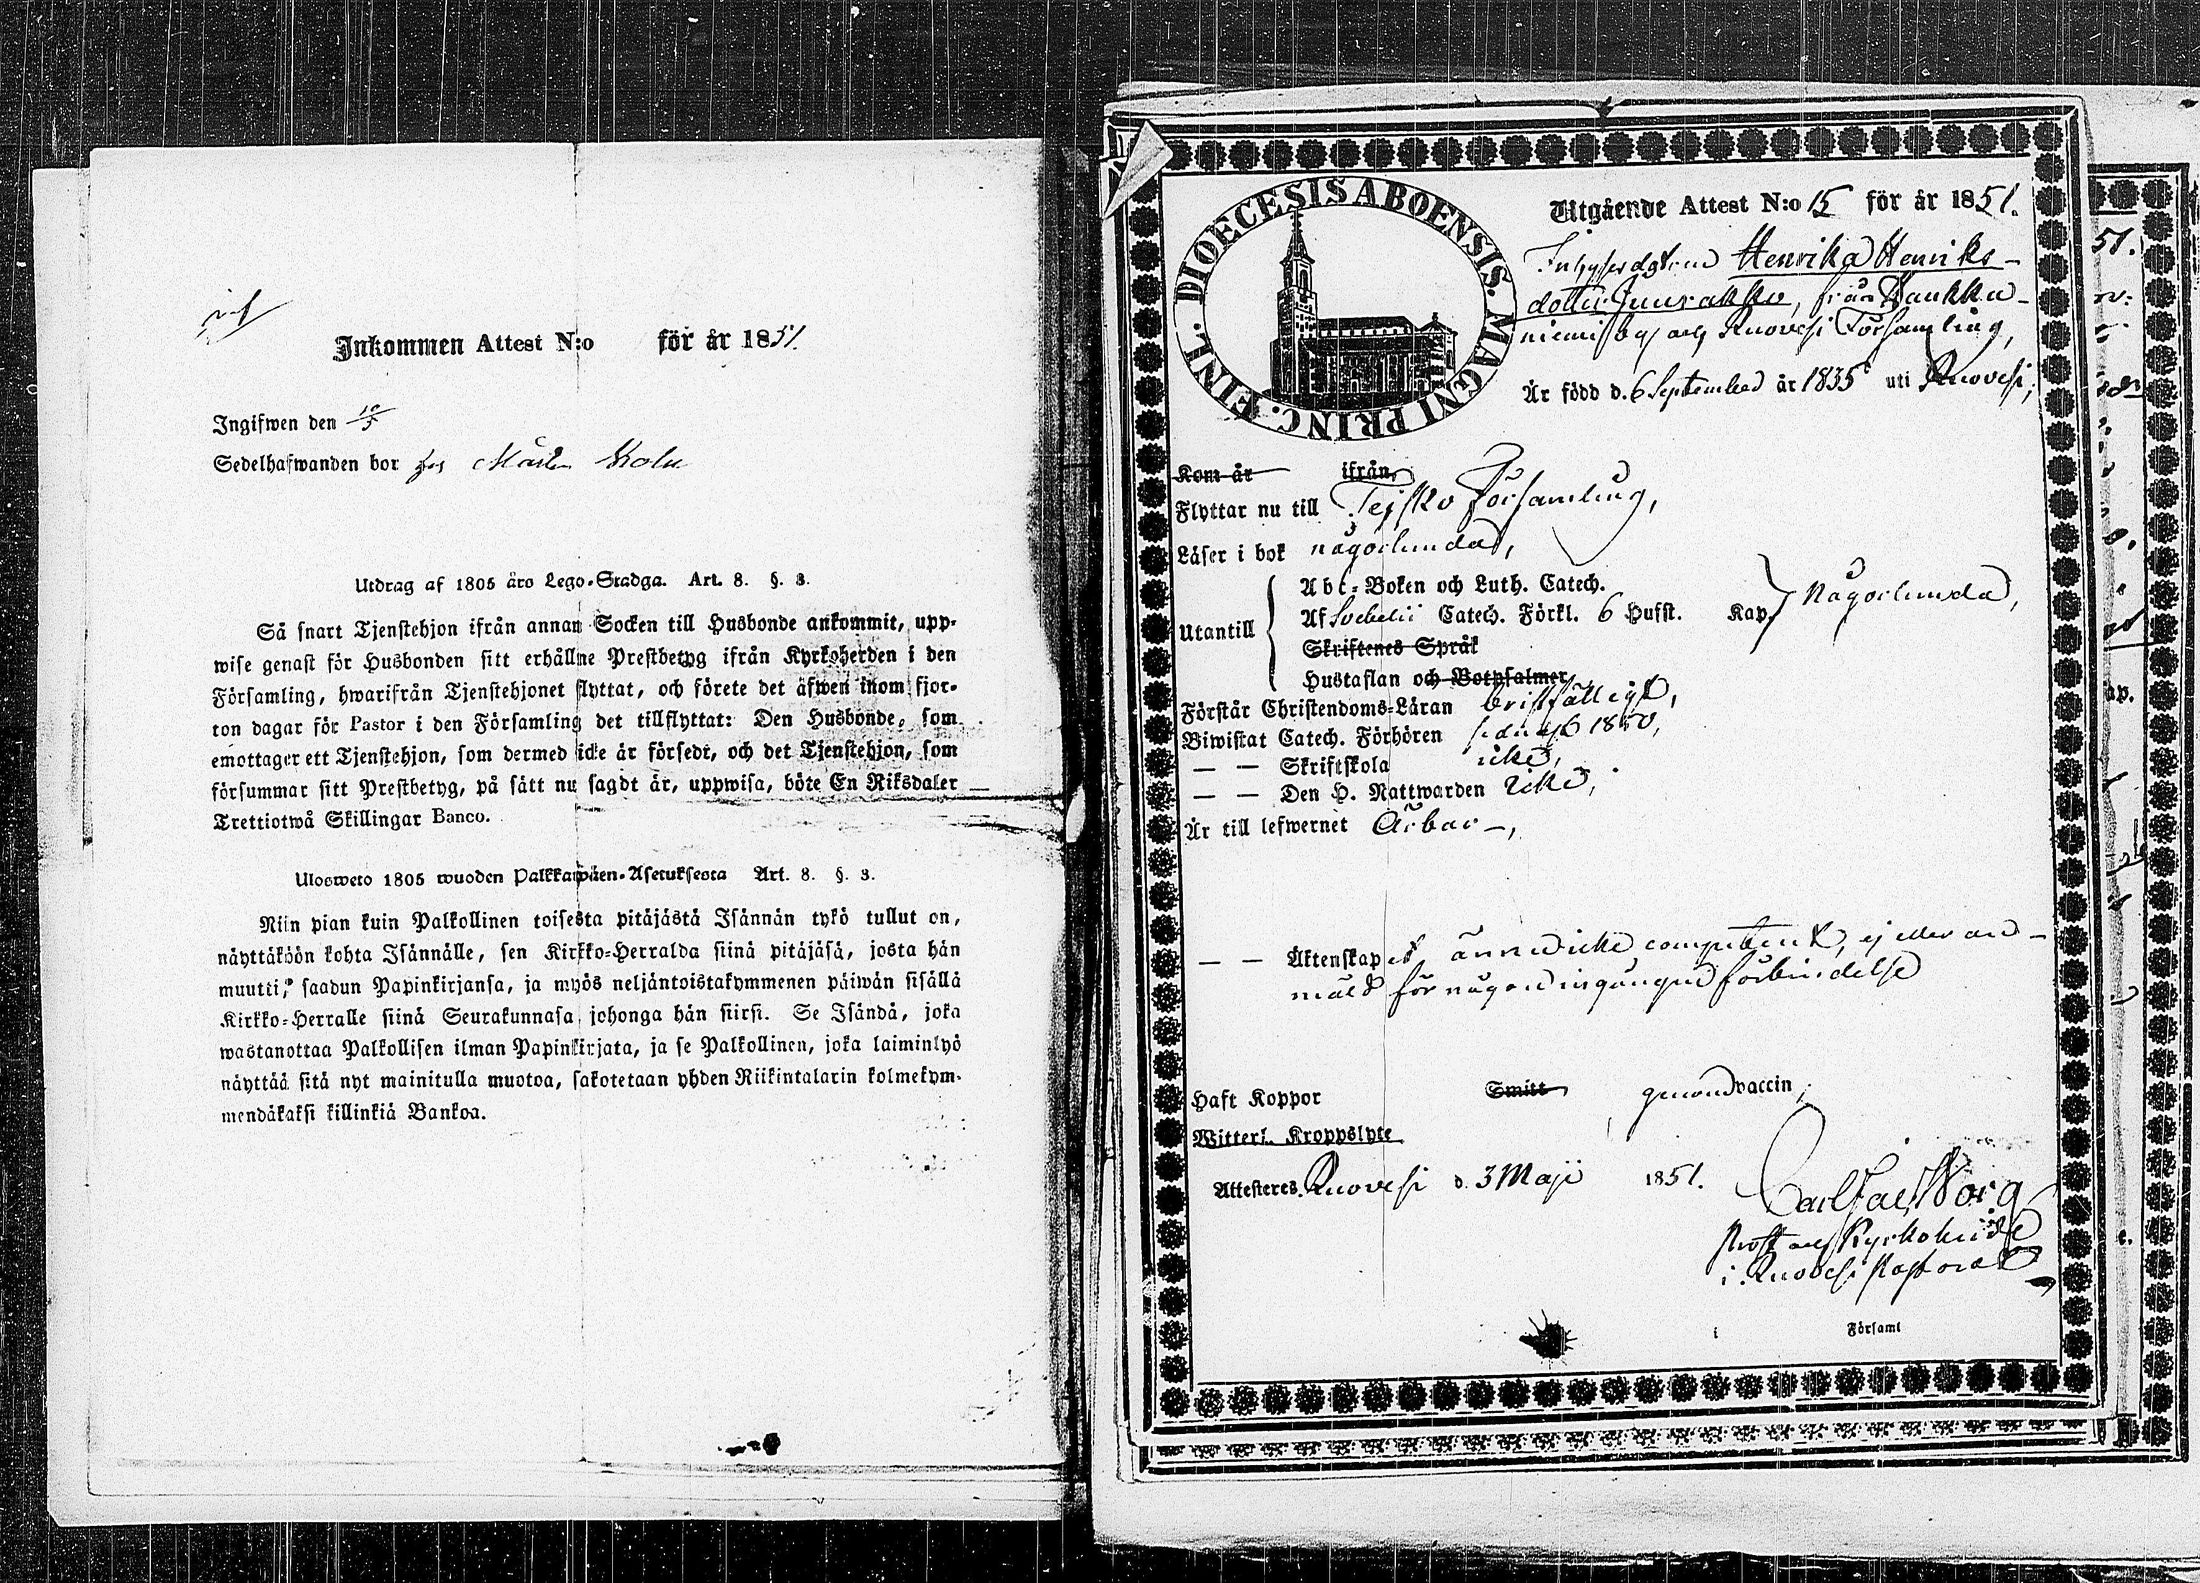 Inkommen Attest N:o för år 1851.
Ingifwen den 10/5
Sedelhafwanden bor hos Mårten
Utdrag af 1805 års Lego-Stadga. Art. 8. §. 3.
Så snart Tjenstehjon ifrån annan Socken till Husbonde ankommit, upp-
wise genast för Husbonden sitt erhållne Prestbetyg ifrån Kyrkoherden i den
Församling, hwarifrån Tjenstehjonet flyttat, och förete det äfwen inom fjor-
ton dagar för Pastor i den Församling det tillflyttat: Den Husbonde, som
emottager ett Tjenstehjon, som dermed icke är försedt, och det Tjenstehjon, som
försummar sitt Prestbetyg, på sätt nu sagdt är, uppwisa, böte En Riksdaler
Trettiotwå Skillingar Banco.
Ulosweto 1805 wuoden Palkkawäen-Asetuksesta Art. 8. §. 3.
Niin pian kuin Palkollinen toisesta pitäjästä Isännän tykö tullut on,
näyttäköön kohta Isännälle, sen Kirkko-Herralda siinä pitäjäsä, josta hän
muutti, saadun Papinkirjansa, ja myös neljäntoistakymmenen päiwän sisällä
Kirkko-Herralle siinä Seurakunnasa johonga hän siirsi. Se Isändä, joka
wastanottaa Palkollisen ilman Papinkirjata, ja se Palkollinen, joka laiminlyö
näyttää sitä nyt mainitulla muotoa, sakotetaan yhden Riikintalarin kolmekym-
mendäkaksi killinkiä Bankoa.
DIOECESIS ABOENSIS. MAGNI PRINC. FINL.
Utgående Attest N:o 15 för år 1851.
Inhysesdottren Henrika Henriks-
dotter Juurakko, från Kaukka-
niemi by och Ruovesi Församling,
Är född d. 6 September år 1835 uti Ruovesi,
Kom år ifrån
Flyttar nu till Teisko Församling,
Läser i bok någorlunda,
Utantill
Abc-Boken och Luth. Catech.
Af Svebelii Catech. Förkl. 6 Hufst. Kap. Någorlunda,
Skriftenes Språk
Hustaflan och Botpsalmer
Förstår Christendoms-Läran bristfälligt,
Biwistat Catech. Förhören sednast 1850,
— — Skriftskola icke,
— — Den H. Nattwarden icke,
Är till lefwernet Ärbar,
— — Äktenskapet ännu icke competent, ej eller an-
mäld för någon ingången förbindelse
Haft Koppor Smitt genom vaccin,
Witterl. Kroppslyte
Attesteras. Ruovesi d. 3 Maji 1851.
Carl Jac. Borg
Prost och Kyrkoherde
i Ruovesi Pastorat
i Församl